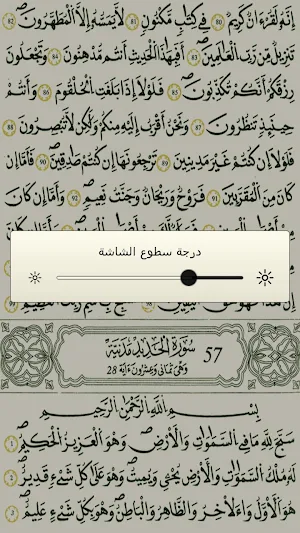 إِنَّهُ لَقُرْءَانٌ كَرِيمٌ 80 فِي كِتَٰبٍ مَّكْنُونٍ 81 لَّا يَمَسُّهُ إِلَّا الْمُطَهَّرُونَ 82
تَنزِيلٌ مِّن رَّبِّ الْعَٰلَمِينَ 83 أَفَبِهَٰذَا الْحَدِيثِ أَنتُم مُّدْهِنُونَ 84 وَتَجْعَلُونَ
رِزْقَكُمْ أَنَّكُمْ تُكَذِّبُونَ 85 فَلَوْلَا إِذَا بَلَغَتِ الْحُلْقُومَ 86 وَأَنتُمْ
حِينَئِذٍ تَنظُرُونَ 87 وَنَحْنُ أَقْرَبُ إِلَيْهِ مِنكُمْ وَلَٰكِن لَّا تُبْصِرُونَ 88
فَلَوْلَا إِن كُنتُمْ غَيْرَ مَدِينِينَ 89 تَرْجِعُونَهَا إِن كُنتُمْ صَٰدِقِينَ 90 فَأَمَّا إِن
كَانَ مِنَ الْمُقَرَّبِينَ 91 فَرَوْحٌ وَرَيْحَانٌ وَجَنَّتُ نَعِيمٍ 92 وَأَمَّا إِن كَانَ
درجة سطوع الشاشة
57 سُورَةُ الْحَدِيدِ مَدَنِيَّةٌ
وَهْيَ ثَمَانِي وَعِشْرُونَ ءَايَةً 28
بِسْمِ اللَّهِ الرَّحْمَٰنِ الرَّحِيمِ
سَبَّحَ لِلَّهِ مَا فِي السَّمَٰوَٰتِ وَالْأَرْضِ وَهْوَ الْعَزِيزُ الْحَكِيمُ 1
لَهُ مُلْكُ السَّمَٰوَٰتِ وَالْأَرْضِ يُحْيِي وَيُمِيتُ وَهْوَ عَلَىٰ كُلِّ شَيْءٍ قَدِيرٌ 2
هُوَ الْأَوَّلُ وَالْءَاخِرُ وَالظَّٰهِرُ وَالْبَاطِنُ وَهْوَ بِكُلِّ شَيْءٍ عَلِيمٌ 3